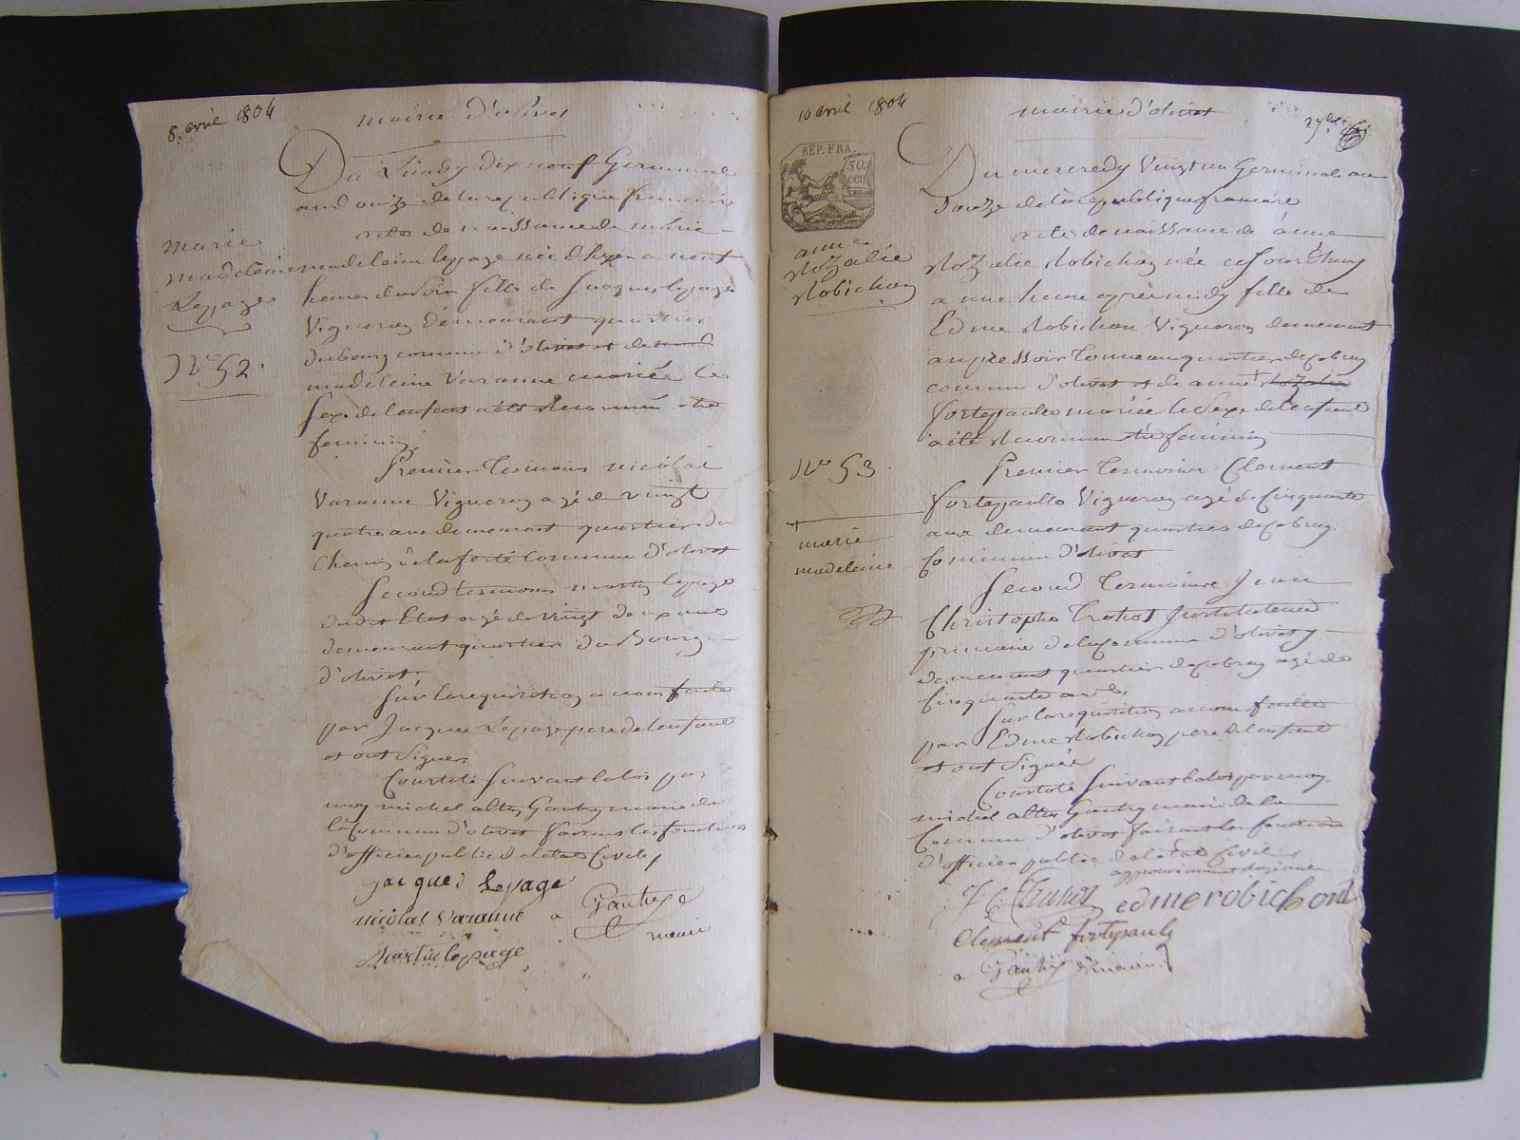 8 avril 1804
mairie d'olivet
Du Lundy dix neuf Germinal
and ouize de la republique francaise
acte de naissance de marie
marie
madeleine
Lepage
N° 52.
madeleine lepage née d'hyer a neuf
heures du soir fille de Jacques lepage
Vigneron demeurant quartier
du bourg commune d'olivet et de
madeleine Varanne mariée le
sexe de l'enfant a été reconnu être
feminin
Premier temoins nicolas
Varanne Vigneron agé de vingt
quatre ans demeurant quartier du
Chemin de la ferté Commune d'olivet
Second temoins martin lepage
dudit Etat agé de vingt deux ans
demeurant quartier du Bourg
d'olivet.
Sur la requisition a nous faite
par Jacques Lepage pere de l'enfant
et ont signer
Constaté suivant la loi par
moy michel altin Gautry maire de
la Commune d'olivet faisant les fonctions
d'officier public de l'état Civile
jacques Lepage
nicolas varanne
Gautry
maire
Martin lepage
10 avril 1804
mairie d'olivet
REP. FRA.
Du mercredy Vingt un Germinal an
Douze de la republique francaise
acte de naissance de anne
anne
Rozalie
Robichon
Rozalie Robichon née ce jourd'huy
a une heure après midy fille de
Edme Robichon Vigneron demeurant
au pressoir tonneau quartier de Cobray
commune d'olivet et de anne + Rozalie
fortepaulle mariée le sexe de l'enfant
a été reconnu être feminin
N° 53.
Premier temoins Clement
fortepaulle Vigneron agé de Cinquante
ans demeurant quartier de Cobray
Commune d'olivet
+ marie
madeleine
Second temoins Jean
Christophe Instituteur
primaire de la Commune d'olivet y
demeurant quartier de Cobray agé de
Cinquante ans
Sur la requisition a nous faitte
par Edme Robichon pere de l'enfant
et ont signé
Constaté suivant la loi par moy
michel altin Gautry maire de la
Commune d'olivet faisant les fonctions
d'officier public de l'état Civile
edme robichond
Clement fortepaulle
Gautry maire